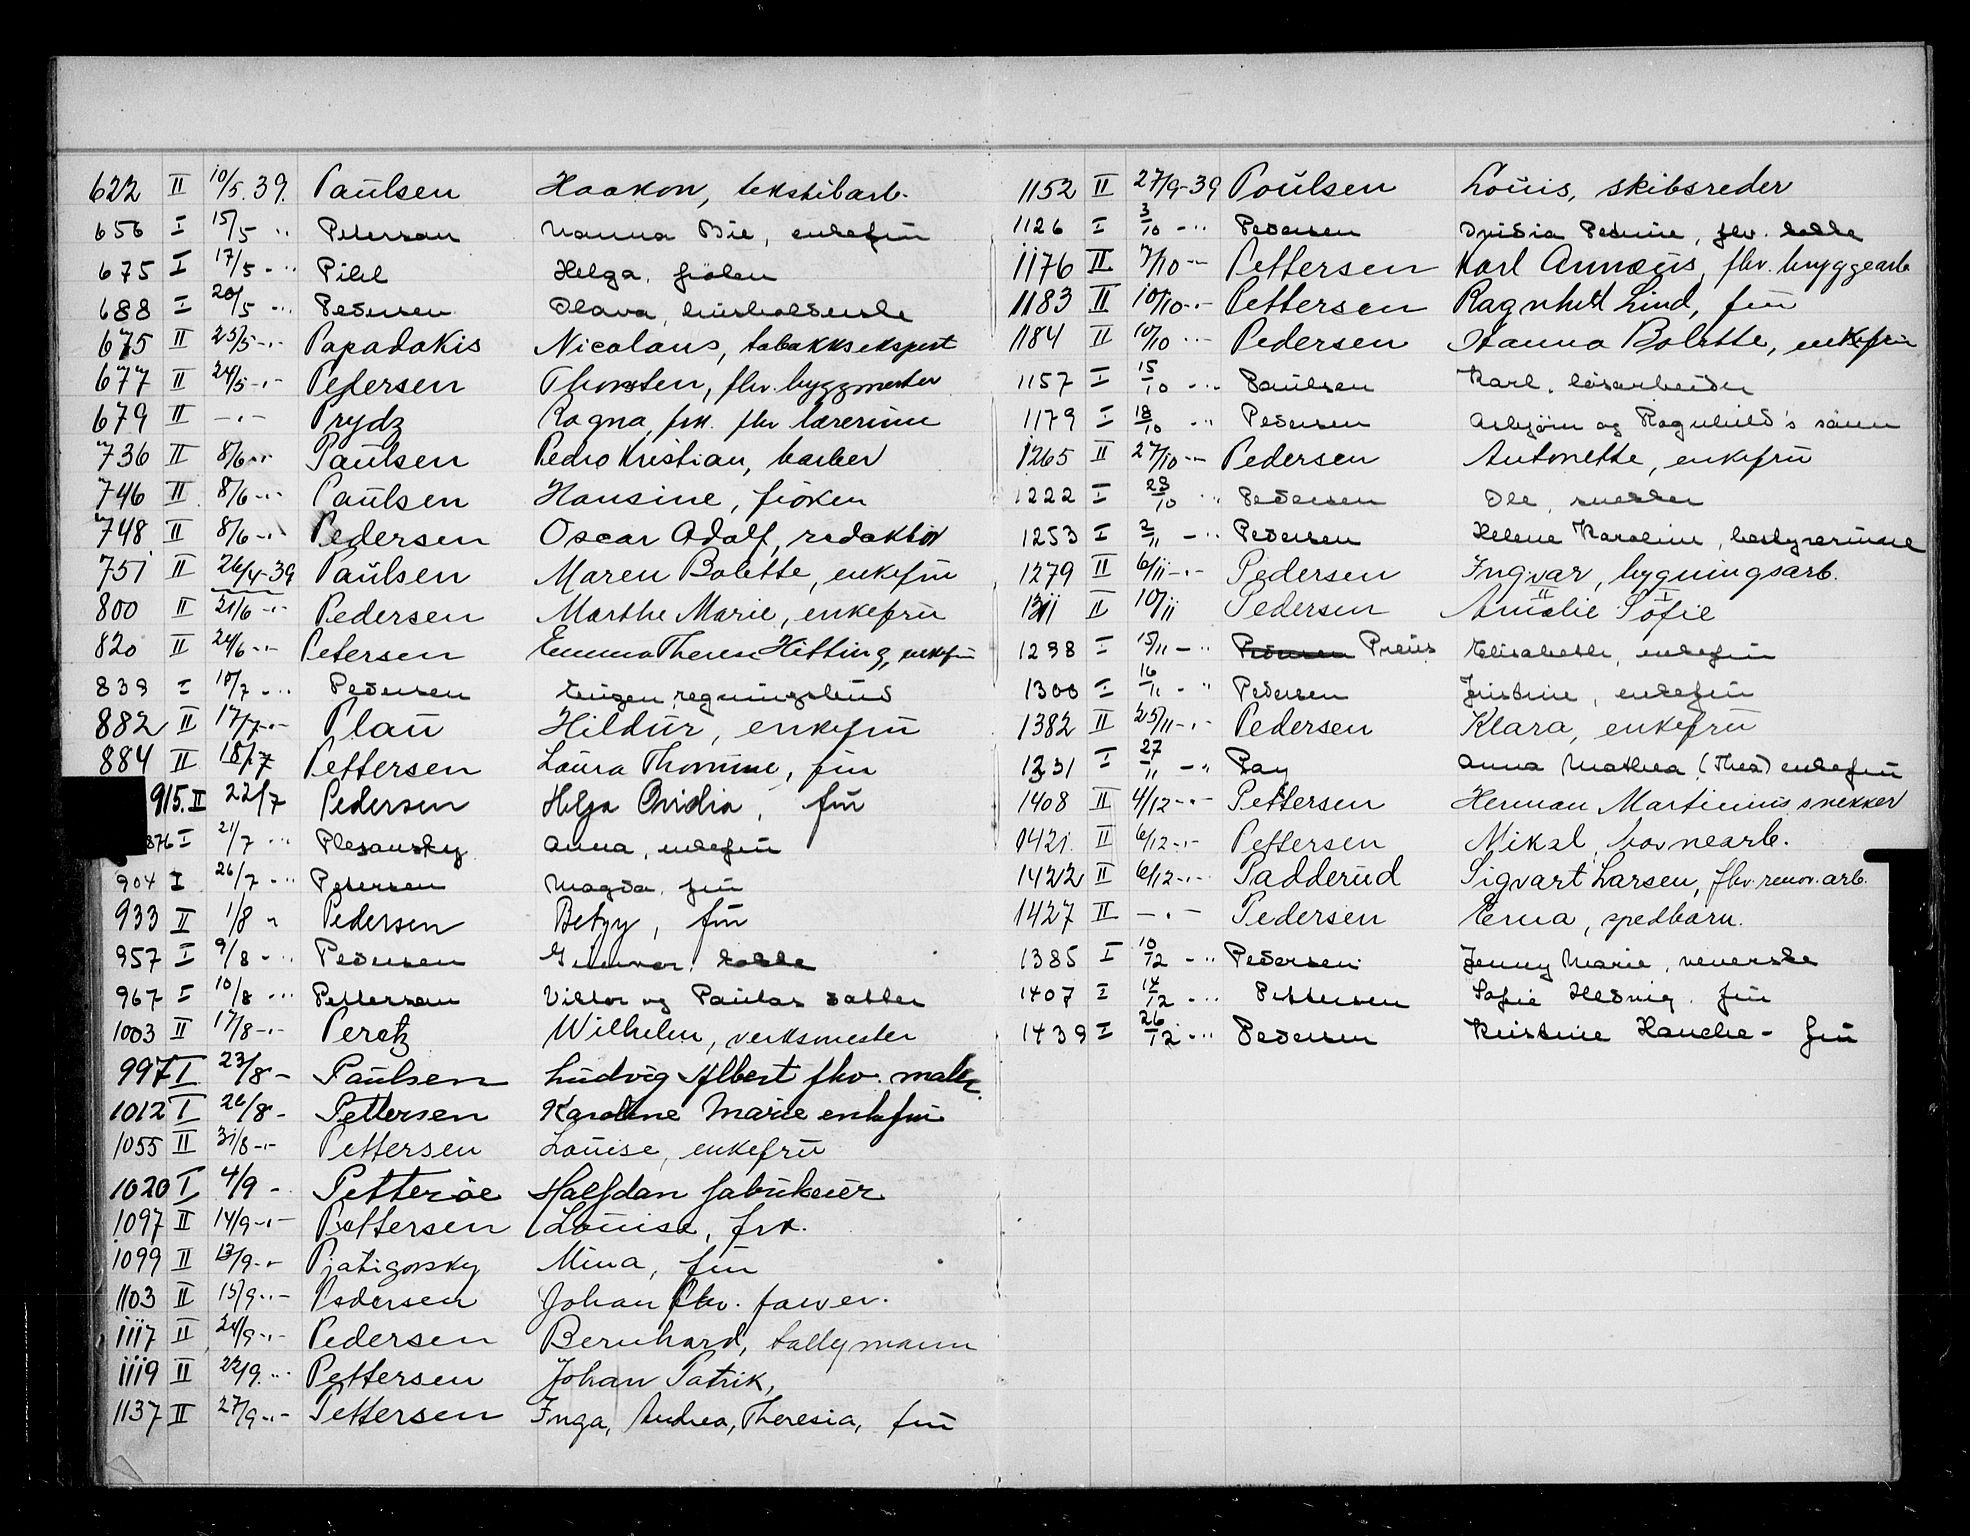 622 II 10/5.39. Paulsen Haakon, tekstilarb.
656 I 15/5 " Peterson Nanna Bie, enkefrü
675 I 17/5 - " Pihl Helga, fröken
688 I 20/5 - " Pedersen Olava, hüsholderske
675 II 23/5 - " - Papadakis Nicolaus, tobakksekspert
677 II 24/5 - " - Petersen Thorsten, fhv. byggmester
679 II - " - Prydz Ragna, frk. fhv lærerinne
736 II 8/6 - " Paülsen Pedro Kristian, barber
746 II 8/6 - " - Paülsen Hansine, fröken
748 II 8/6 - " - Pedersen Oscar Adolf, redaktör
751 II 26/4-39 Paülsen Maren Bolette, enkefrü
800 II 21/6 - " - Pedersen Marthe Marie, enkefrü
820 II 24/6 - " - Petersen Emma Theresa Hitting, enkefrü
839 I 10/7 - " Pedersen Eügen, regningsbüd
882 II 17/7 - " - Plaü Hildür, enkefrü
884 II 18/7 Pettersen Laüra Thomine, frü
915. II 22/7 Pedersen Helga Ovidia, frü
876 I 21/7 " Plesansky Anna, enkefrü
904 I 26/7 - " Petersen Magda, frü
933 II 1/8 " Pedersen Betzy, frü
957 I 9/8 - " Pedersen Günvor, kokke
967 I 10/8 - " Petterson Viktor og Paulas datter
1003 II 17/8 - " - Peretz Wilhelm, verksmester
997 I 23/8 - Paülsen Lüdvig Albert fhv. maler.
1012 I 26/8 - Pettersen Karoline Marie enkefrü
1055 II 31/8 - " - Pettersen Loüise, enkefrü
1020 I 4/9 - Petteröe Halfdan fabrikeier
1097 II 14/9 - " - Pettersen Loüise, frk.
1099 II 13/9 - " - Pjatigorsky Mina, frü
1103 II 15/9 - " - Pedersen Johan fhv. farver.
1117 II 21/9 - " - Pedersen Bernhard, tallymann
1119 II 22/9 - " Pettersen Johan Patrik,
1137 II 27/9 - " - Pettersen Inga, Andrea, Theresia, frü
1152 II 27/9-39 Poülsen Loüis, skibsreder
1126 I 3/10 - " Pedersen Ovidia Petrine, fhv. kokke
1176 II 7/10 - " - Pettersen Karl Annæüs, fhv. bryggearb
1183 II 10/10 - " - Pettersen Ragnhild Lind, frü
1184 II 10/10 - " Pedersen Hanna Bolette, enkefrü
1157 I 15/10 - " Paülsen Karl, lösarbeider
1179 I 18/10 " Pedersen Asbjörn og Ragnhild's sönn
1265 II 27/10 - " - Pedersen Antonette, enkefrü
1222 I 23/10 " Pedersen Ole, snekker
1253 I 2/11 - " Pedersen Helene Karoline, bestyrerinne
1279 II 6/11 - " - Pedersen Ingvar, bygningsarb.
1311 II 10/11 Pedersen Amalie Sofie
1298 I 15/11 - " Pedersen Preüs Elisabeth, enkefrü
1300 I 16/11 - " Pedersen Jüstine, enkefrü
1382 II 25/11 - " - Pedersen Klara, enkefrü
1231 I 27/11 - " Pay Anna Mathea (Thea) enkefrü
1408 II 4/12 - " - Pettersen Herman Martinius snekker
1421. II 6/12 - " - Pettersen Mikal, havnearb.
1422 II 6/12 - " - Padderüd Sigvart Larsen, fhv. renov. arb.
1427 II - " - Pedersen Erna, spedbarn.
1385 I 10/12 - " Pedersen Jenny Marie, veverske
1407 I 14/12 - " Pettersen Sofie Hedvig, frü
1439 I 26/12 - " Pedersen Kristine Hauche - frü